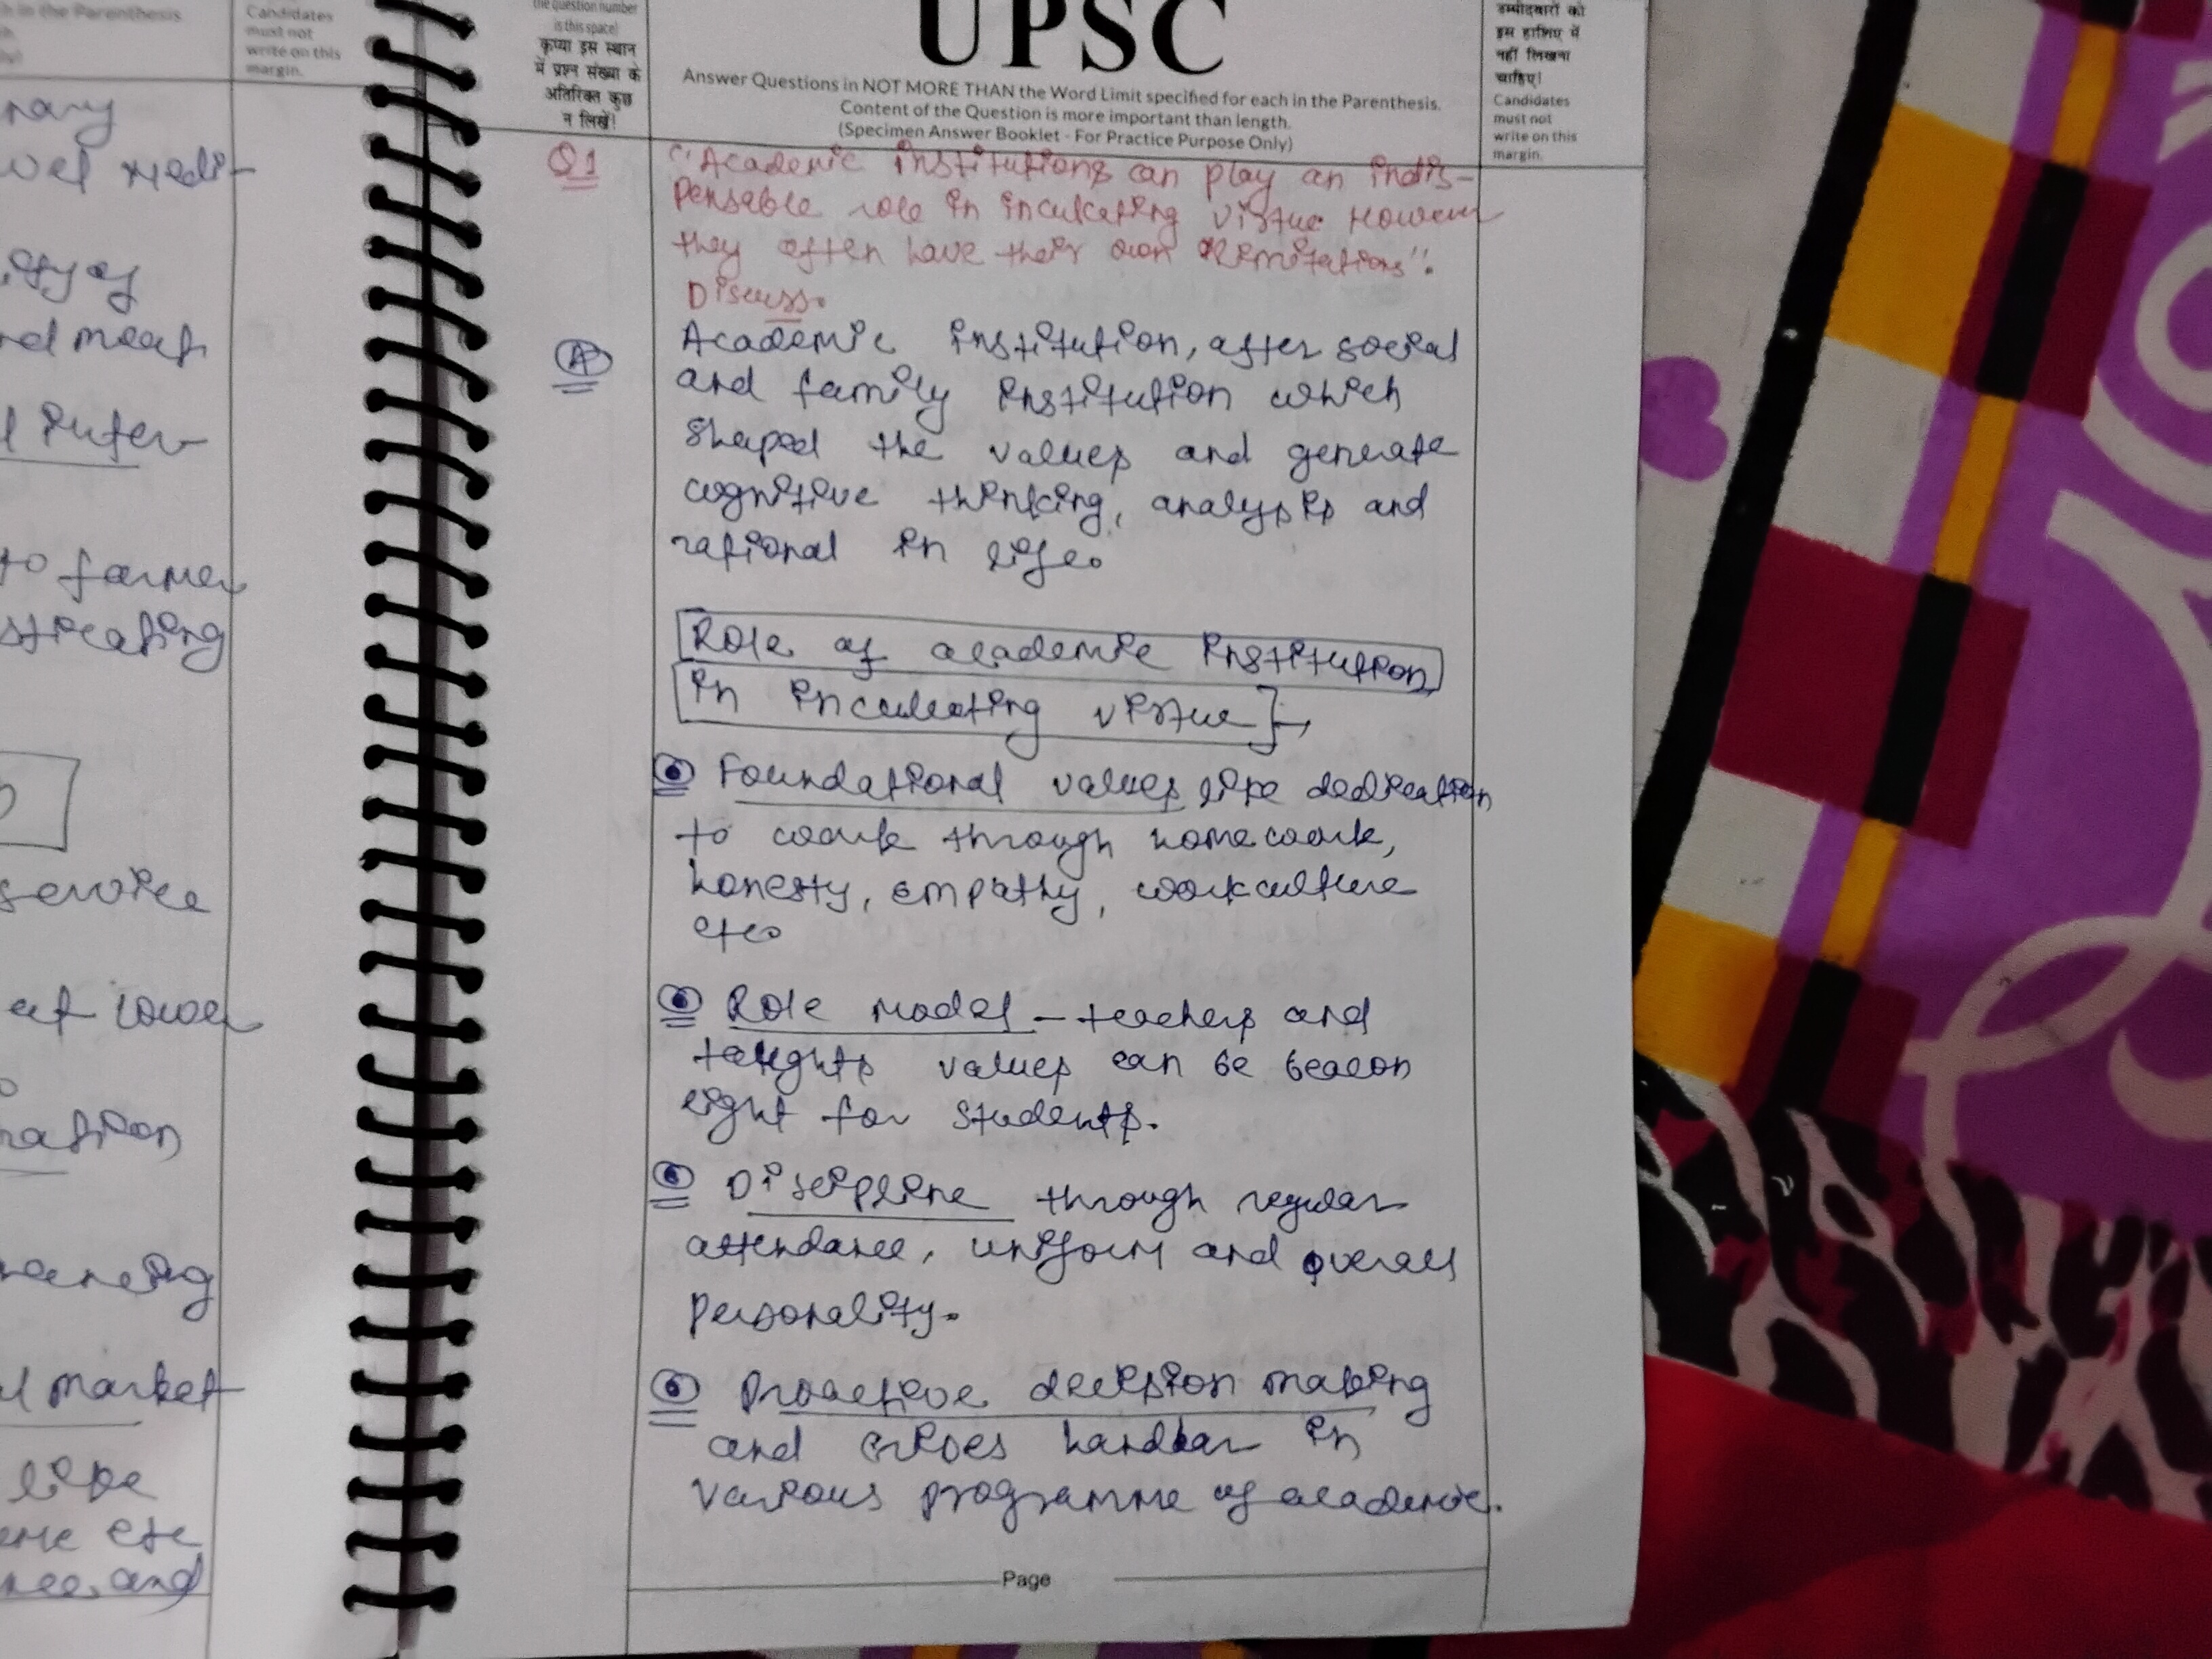 h in the Parenthesis
Candidates
must not
write on this
margin.
nary
vel medi-
ity of
nd meat
to farmer
sticating
service
at lower
nation
market
like
etc
and
the question number
is this space)
कृप्या इस स्थान
में प्रश्न संख्या के
अतिरिक्त कुछ
न लिखें!
UPSC
Answer Questions in NOT MORE THAN the Word Limit specified for each in the Parenthesis.
Content of the Question is more important than length.
(Specimen Answer Booklet - For Practice Purpose Only)
उम्मीदवारों को
इस हाशिए में
नहीं लिखना
चाहिए!
Candidates
must not
write on this
margin.
Q1 "Academic institutions can play an indis-
pensable role in inculcating virtue However
they often have their own limitations".
Discuss.
(A) Academic institution, after social
and family institution which
shaped the values and generate
cognitive thinking, analysis and
rational in life.
Role of academic institution
in inculcating virtue
Foundational values like dedication
to work through homework,
honesty, empathy, workculture
etc.
Role model - teachers and
taughts values can be beacon
light for students.
Discipline through regular
attendance, uniform and overall
personality.
Proactive decision making
and in
various programme of academic.
Page